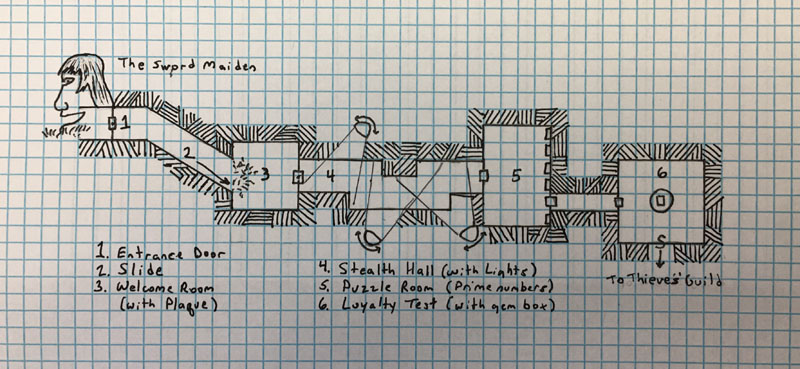 The Sword Maiden
1
2
3
4
5
6
S
To Thieves' Guild
1. Entrance Door
2. Slide
3. Welcome Room
(with Plaque)
4. Stealth Hall (with Lights)
5. Puzzle Room (Prime numbers)
6. Loyalty Test (with gem box)